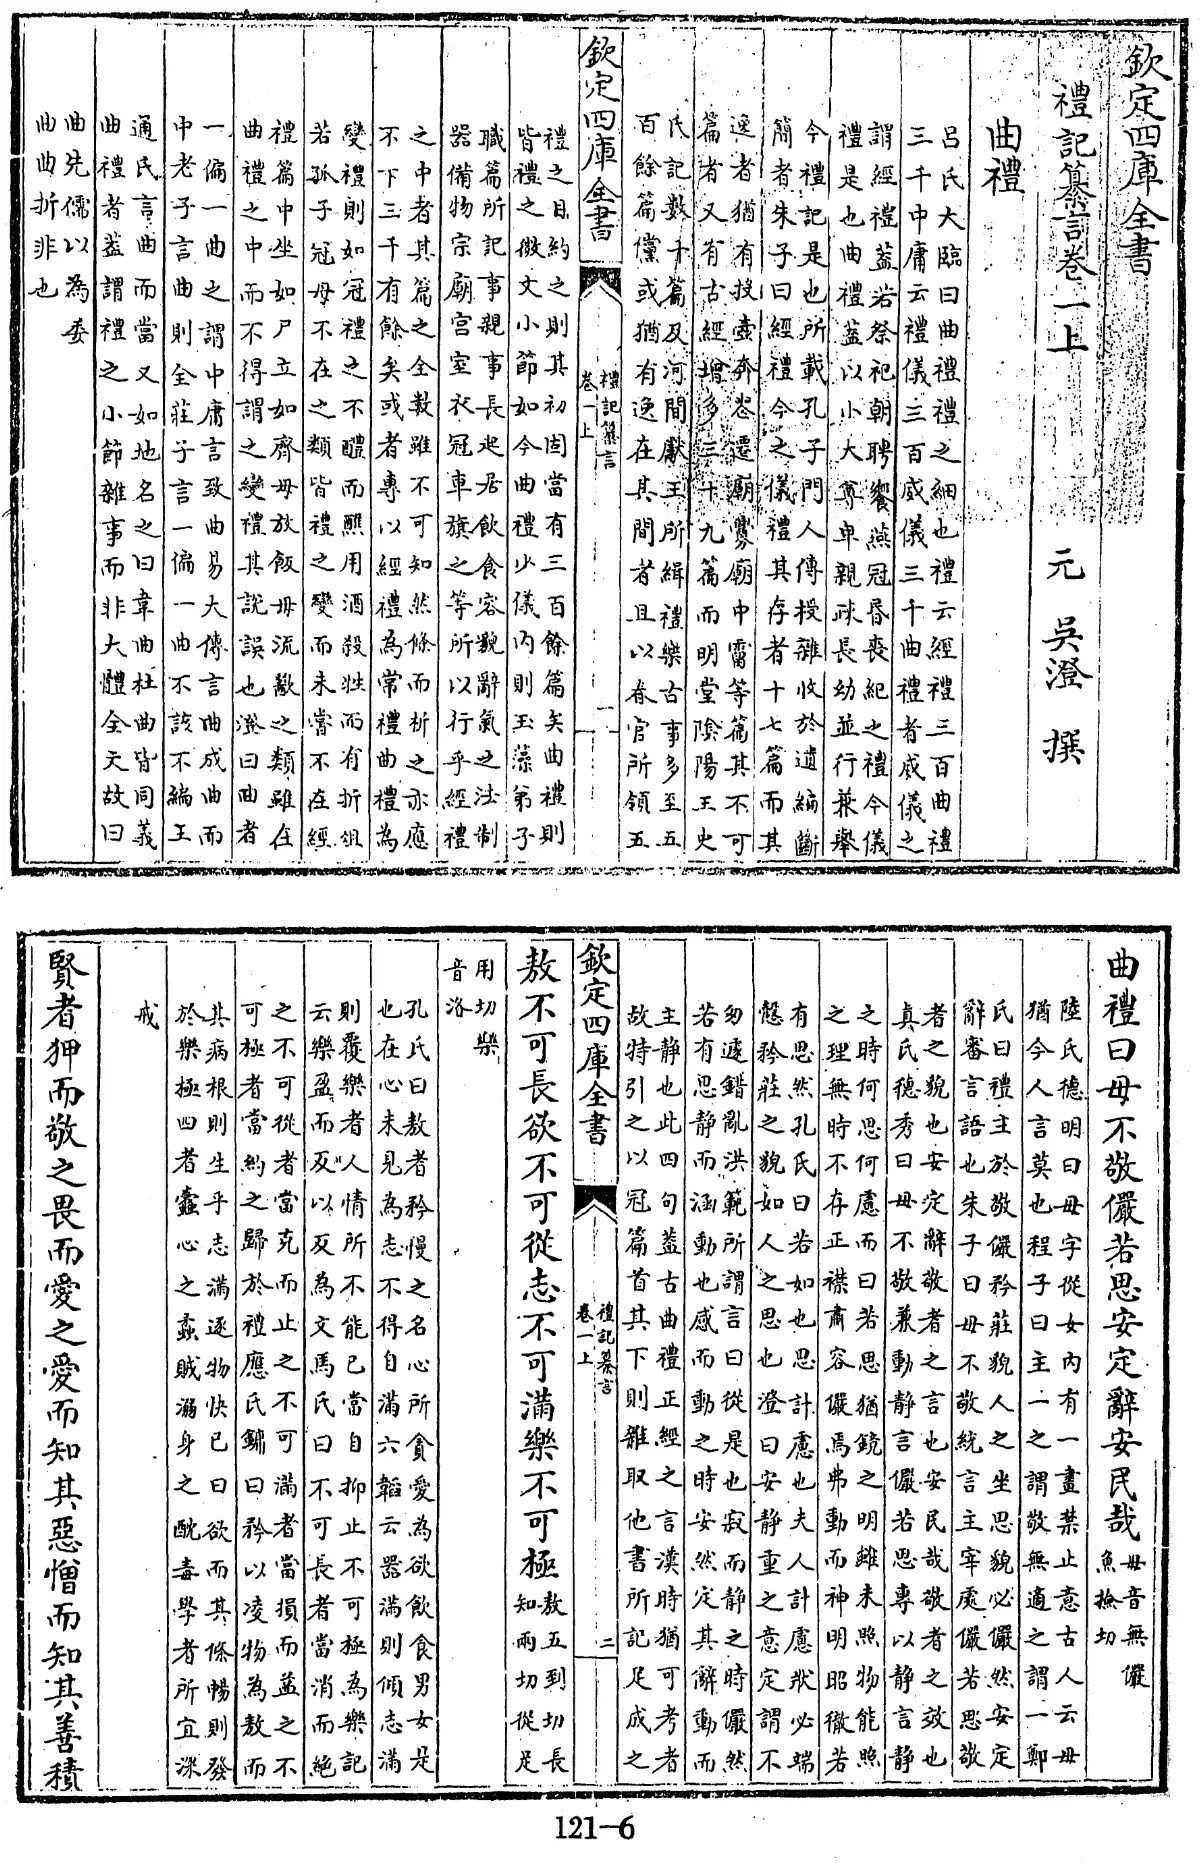 欽定四庫全書
禮記纂言卷一上　元　吳澄　撰
曲禮
呂氏大臨曰曲禮禮之細也禮云經禮三百曲禮
三千中庸云禮儀三百威儀三千曲禮者威儀之
謂經禮蓋若祭祀朝聘饗燕冠昏喪紀之禮今儀
禮是也曲禮蓋以小大尊卑親疎長幼並行兼舉
今禮記是也所載孔子門人傳授雜收於遺編斷
簡者朱子曰經禮今之儀禮其存者十七篇而其
逸者猶有投壺奔喪遷廟釁廟中霤等篇其不可
篇者又有古經增多三十九篇而明堂陰陽王史
氏記數十篇及河間獻王所緝禮樂古事多至五
百餘篇儻或猶有逸在其間者且以春官所領五
欽定四庫全書
禮記纂言
卷一上
一
禮之目約之則其初固當有三百餘篇矣曲禮則
皆禮之微文小節如今曲禮少儀内則玉藻弟子
職篇所記事親事長起居飲食容貌辭氣之法制
器備物宗廟宫室衣冠車旗之等所以行乎經禮
之中者其篇之全數雖不可知然條而析之亦應
不下三千有餘矣或者專以經禮為常禮曲禮為
變禮則如冠禮之不醴而醮用酒殺牲而有折俎
若孤子冠母不在之類皆禮之變而未嘗不在經
禮篇中坐如尸立如齊毋放飯毋流歠之類雖在
曲禮之中而不得謂之變禮其說誤也澄曰曲者
一偏一曲之謂中庸言致曲易大傳言曲成曲而
中老子言曲則全莊子言一偏一曲不該不徧王
通氏言曲而當又如地名之曰韋曲杜曲皆同義
曲禮者蓋謂禮之小節雜事而非大體全天故曰
曲先儒以為委
曲曲折非也
曲禮曰毋不敬儼若思安定辭安民哉毋音無儼
魚檢切
陸氏德明曰毋字從女内有一畫禁止意古人云毋
猶今人言莫也程子曰主一之謂敬無適之謂一鄭
氏曰禮主於敬儼矜莊貌人之坐思貌必儼然安定
辭審言語也朱子曰毋不敬統言主宰處儼若思敬
者之貌也安定辭敬者之言也安民哉敬者之效也
真氏德秀曰毋不敬兼動靜言儼若思專以靜言靜
之時何思何慮而曰若思猶鏡之明雖未照物能照
之理無時不存正襟肅容儼焉弗動而神明昭徹若
有思然孔氏曰若如也思計慮也夫人計慮狀必端
慤矜莊之貌如人之思也澄曰安靜重之意定謂不
匆遽錯亂洪範所謂言曰從是也寂而靜之時儼然
若有思靜而涵動也感而動之時安然定其辭動而
主靜也此四句蓋古曲禮正經之言漢時猶可考者
故特引之以冠篇首其下則雜取他書所記足成之
欽定四庫全書
禮記纂言
卷一上
二
敖不可長欲不可從志不可滿樂不可極敖五到切長
知兩切從足
用切樂
音洛
孔氏曰敖者矜慢之名心所貪愛為欲飲食男女是
也在心未見為志不得自滿六韜云器滿則傾志滿
則覆樂者人情所不能已當自抑止不可極為樂記
云樂盈而反以反為文馬氏曰不可長者當消而絕
之不可從者當克而止之不可滿者當損而益之不
可極者當約之歸於禮應氏鏞曰矜以凌物為敖而
其病根則生乎志滿逐物快已曰欲而其條暢則發
於樂極四者蠧心之蟊賊溺身之酖毒學者所宜深
戒
賢者狎而敬之畏而愛之愛而知其惡憎而知其善積
121-6